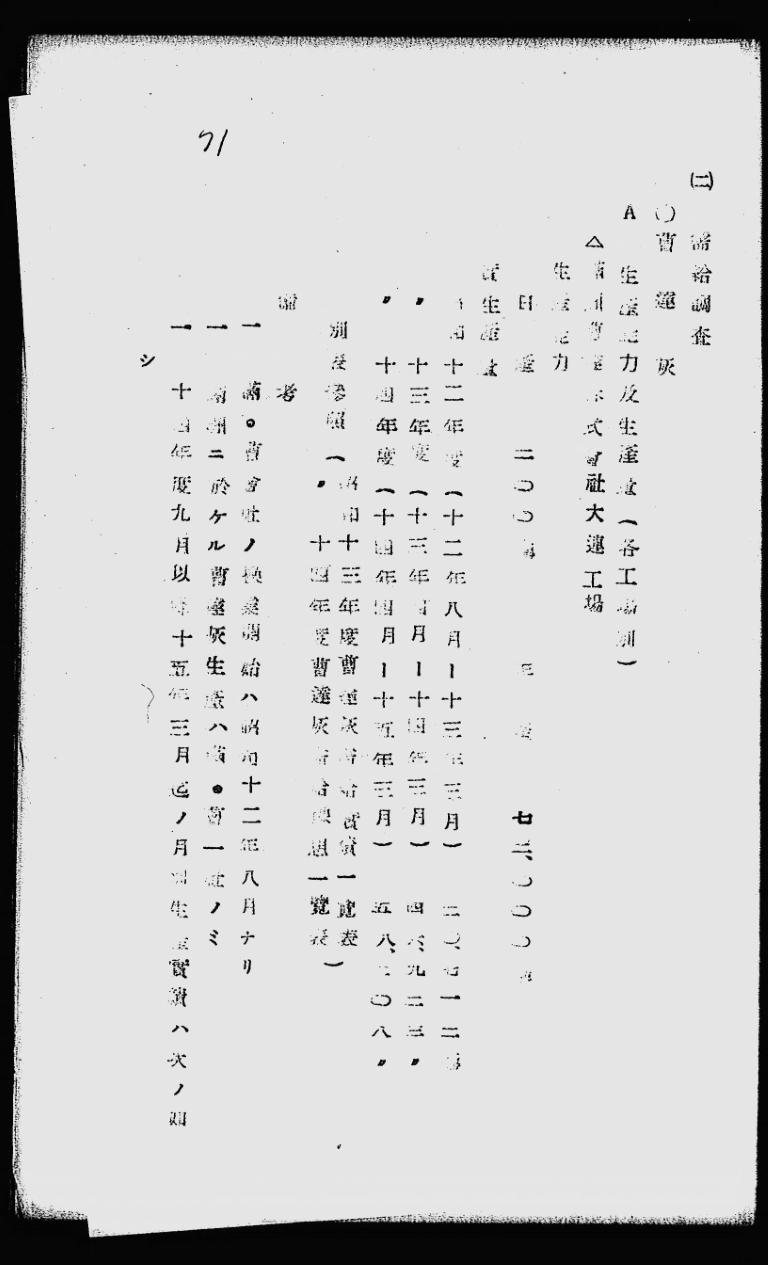 71
㈡ 需給調査
〇曹達灰
A 生産能力及生産量(各工場別)
△満洲曹達株式會社大連工場
生産能力
日産 二〇〇瓲 年産 七三、〇〇〇瓲
實生産量
昭和十二年度(十二年八月ー十三年三月) 二〇、七一二瓲
〃 十三年度(十三年四月ー十四年三月) 四六、九二三〃
〃 十四年度(十四年四月ー十五年三月) 五八、 〇八〃
別表參照(昭和十三年度曹達灰需給實績一覽表
〃 十四年度曹達灰需給 一覽表)
備考
一 滿。曹會社ノ操業開始ハ昭和十二年八月ナリ
一 滿洲ニ於ケル曹達灰生産ハ滿●曹一社ノミ
一 十四年度九月以降十五年三月迄ノ月別生産實績ハ次ノ如
シ